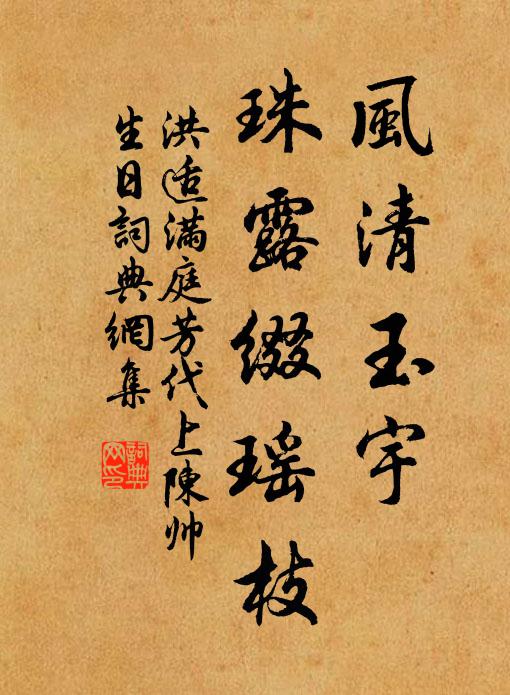 風清玉宇
珠露綴瑶枝
洪适滿庭芳代上陳帅
生日詞典網集
詞典
网印